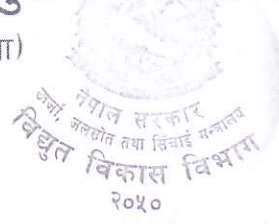 ा)
नेपाल सरकार
ऊर्जा, जलस्रोत तथा सिंचाई मन्त्रालय
विद्युत विकास विभाग
२०५०